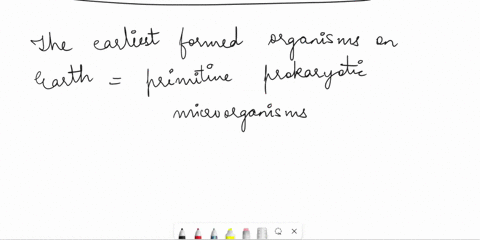 The earliest formed organisms on
Earth = primitive prokaryotic
microorganisms